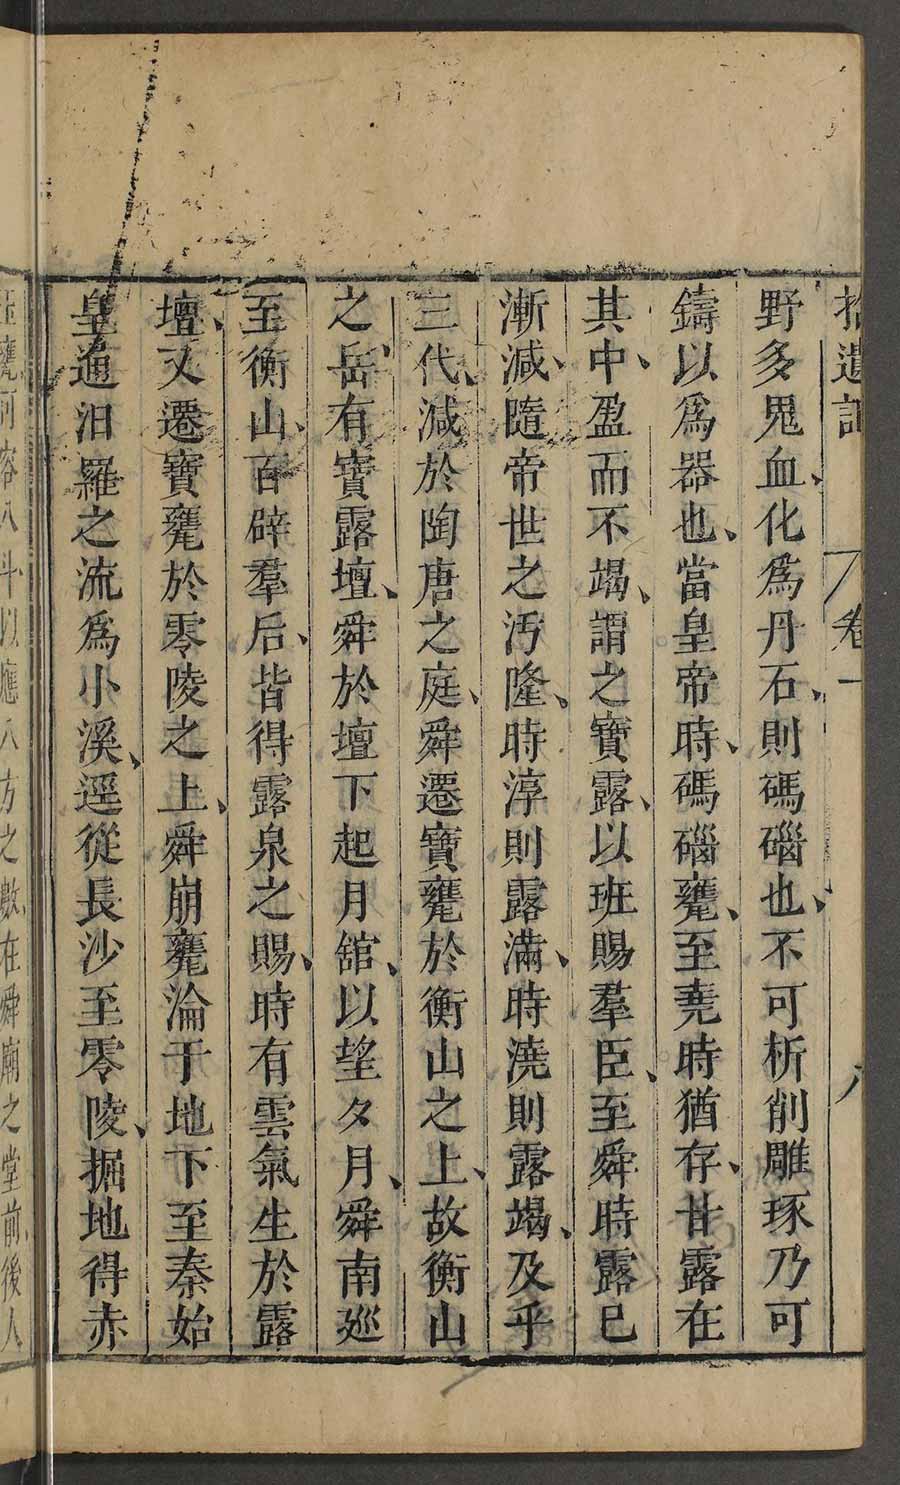 拾遺記　卷一　八
野多鬼血、化爲丹石、則碼碯也、不可析削雕琢乃可
鑄以爲器也、當皇帝時、碼碯甕、至堯時猶存、甘露在
其中、盈而不竭、謂之寶露、以班賜羣臣、至舜時露已
漸減、隨帝世之汚隆、時淳則露滿、時澆則露竭、及乎
三代、減於陶唐之庭、舜遷寶甕於衡山之上、故衡山
之岳有寶露壇、舜於壇下起月舘、以望夕月、舜南廵
至衡山、百辟羣后、皆得露泉之賜、時有雲氣生於露
壇、又遷寶甕於零陵之上、舜崩甕淪于地下至秦始
皇通汨羅之流爲小溪、逕從長沙至零陵、掘地得赤
玉甕、可容八斗、以應八方之數、在舜廟之堂前、後人